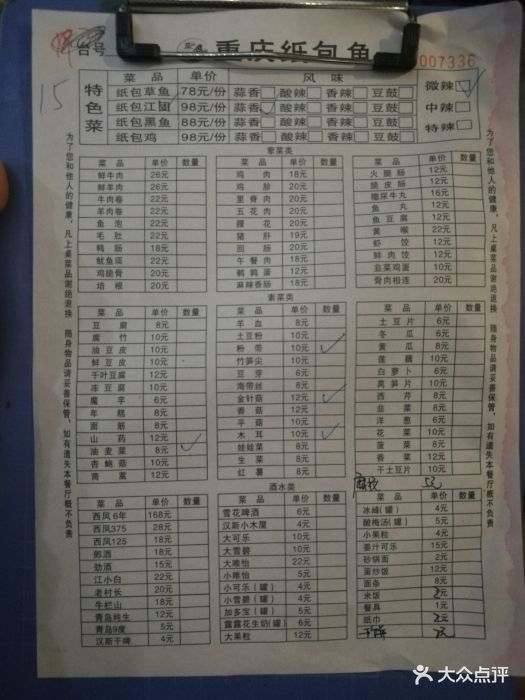 台号
重庆纸包鱼
007336
15
特色菜
菜品 单价 风味
纸包草鱼 78元/份 蒜香 酸辣 香辣 豆鼓
纸包江团 98元/份 蒜香 酸辣 香辣 豆鼓
纸包黑鱼 88元/份 蒜香 酸辣 香辣 豆鼓
纸包鸡 98元/份 蒜香 酸辣 香辣 豆鼓
微辣
中辣
特辣
为了您和他人的健康,凡上桌菜品谢绝退换 随身物品请妥善保管,如有遗失本餐厅概不负责
荤菜类
菜品 单价 数量
鲜牛肉 26元
鲜羊肉 26元
牛肉卷 22元
羊肉卷 22元
鱼泡 22元
毛肚 22元
鸭肠 18元
鱿鱼须 22元
鸡脆骨 20元
培根 20元
菜品 单价 数量
鸡肉 18元
鸡胗 20元
里脊肉 20元
五花肉 20元
腰花 20元
猪肝 19元
回肠 20元
午餐肉 18元
鹌鹑蛋 12元
麻辣香肠 18元
菜品 单价 数量
火腿肠 12元
脆皮肠 12元
撒尿牛丸 16元
鱼丸 12元
鱼豆腐 12元
黄喉 22元
虾饺 12元
鲜肉饺 12元
韭菜鸡蛋 10元
骨肉相连 20元
素菜类
菜品 单价 数量
豆腐 8元
腐竹 10元
油豆皮 10元
鲜豆皮 10元
千叶豆腐 12元
冻豆腐 10元
魔芋 6元
年糕 8元
面筋 8元
山药 12元
油麦菜 8元
杏鲍菇 10元
茼蒿 12元
菜品 单价 数量
羊血 8元
土豆粉 10元
粉带 10元
竹笋尖 10元
豆芽 6元
海带丝 8元
金针菇 12元
香菇 12元
平菇 10元
木耳 10元
娃娃菜 8元
生菜 8元
红薯 8元
菜品 单价 数量
土豆片 6元
冬瓜 6元
黄瓜 8元
莲藕 10元
白萝卜 6元
莴笋片 10元
西芹 8元
韭菜 8元
洋葱 6元
花菜 10元
菠菜 8元
香菜 12元
干土豆片 10元
酒水类
菜品 单价 数量
西凤6年 168元
西凤375 28元
西凤125 18元
郎酒 18元
劲酒 15元
江小白 22元
老村长 20元
牛栏山 18元
青岛纯生 12元
青岛9度 5元
汉斯干啤 4元
菜品 单价 数量
雪花啤酒 6元
汉斯小木屋 4元
大可乐 10元
大雪碧 10元
大唯怡 22元
小唯怡 5元
小可乐(罐) 4元
小雪碧(罐) 4元
加多宝(罐) 5元
露露花生奶(罐) 6元
大果粒 12元
菜品 单价 数量
冰峰(罐) 4元
酸梅汤(罐) 5元
小果粒 4元
姜汁可乐 15元
砂锅面 2元
蛋炒饭 12元
面条 8元
米饭 2元
餐具 1元
纸巾 2元
大众点评